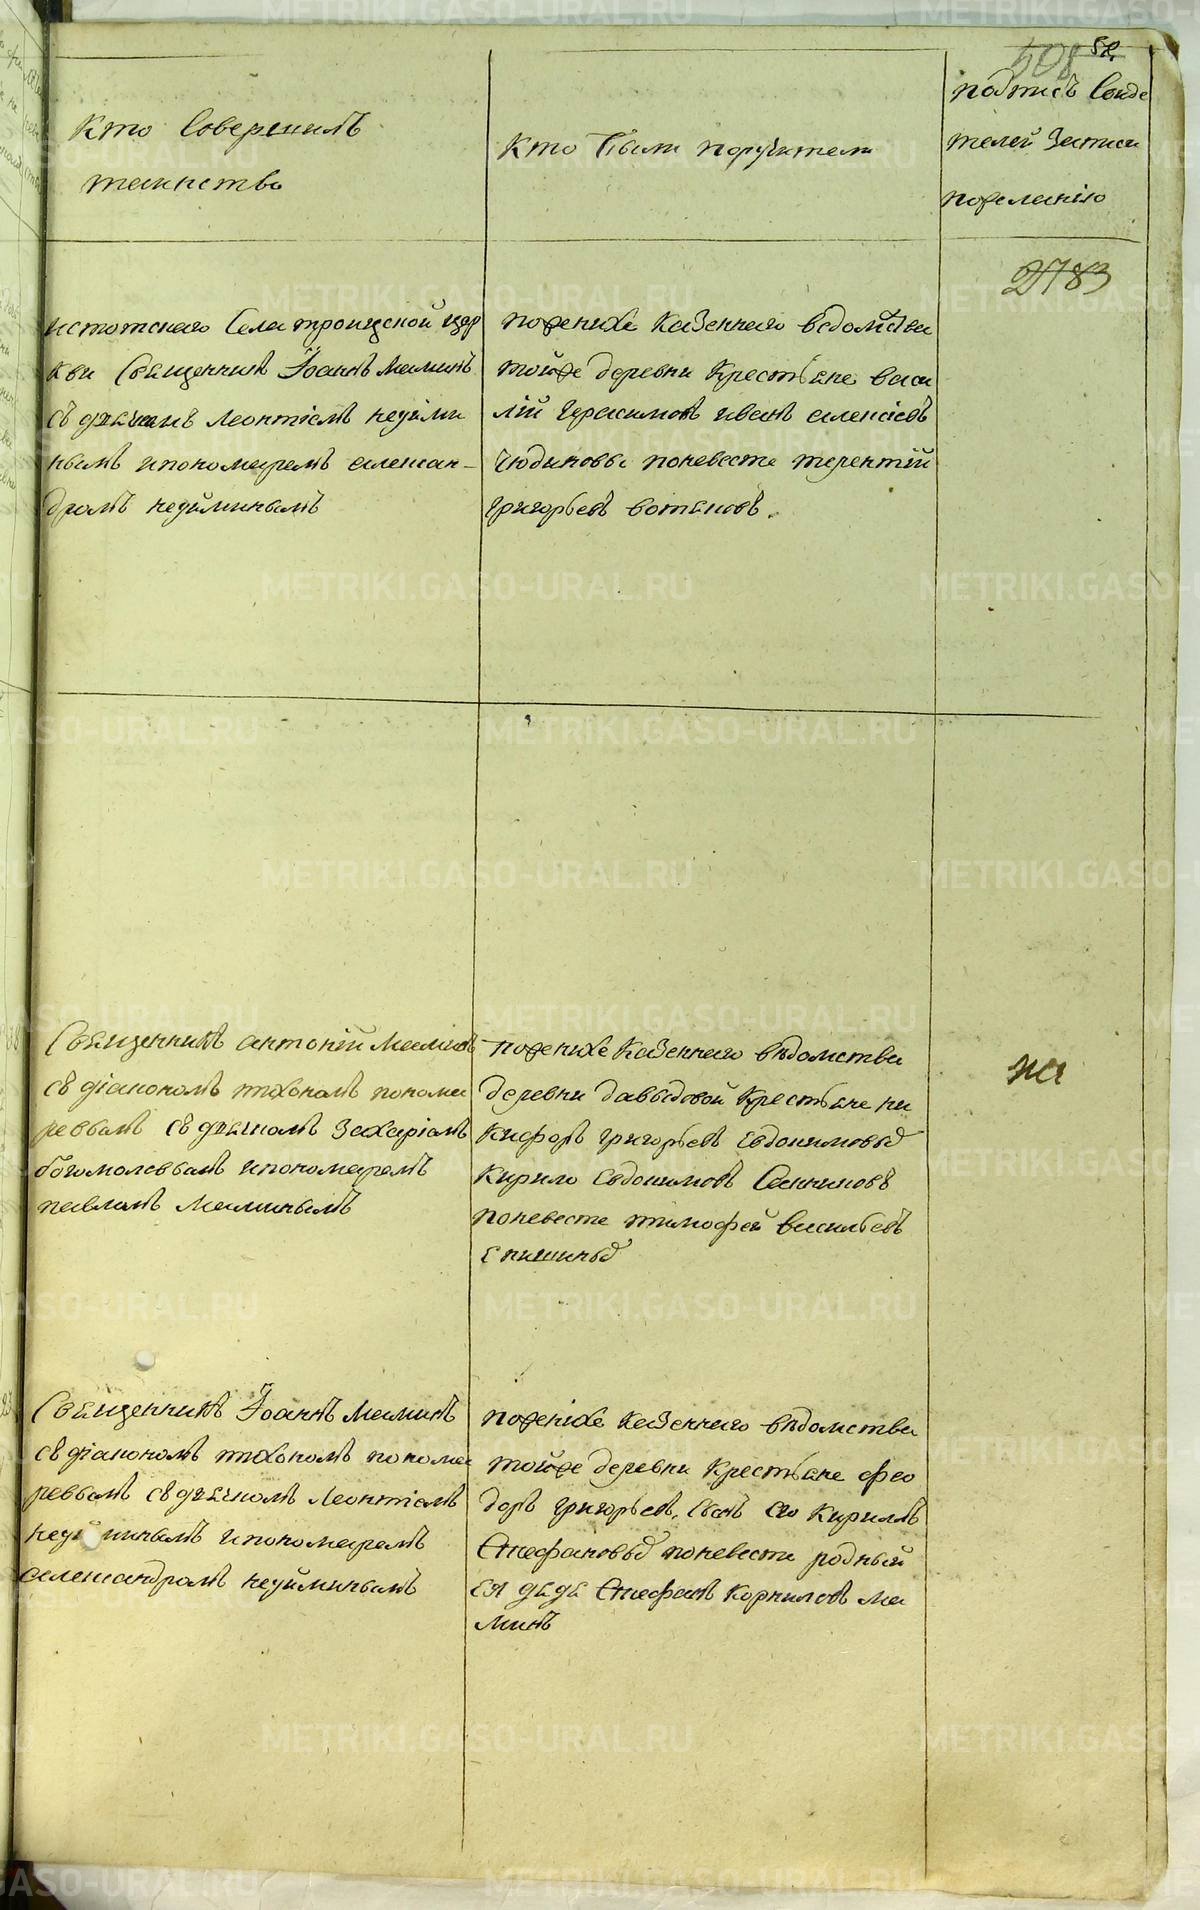 508 58.
Кто Совершилъ
таинство
Кто были поручители
подписъ Свиде
телей Записи
пожеланію
2783
истотскаго Села троицкой цер
кви Священникъ Іоаннъ Маминъ
съ дьячкомъ Леонтіемъ неуйми
нымъ ипономаремъ алексан-
дромъ неуйминымъ
пожених Казеннаго ведомства
тойже деревни Крестьяне васи
лій Герасимовъ иванъ алексіевъ
чюдиновы поневесте терентій
Григорьевъ вотяковъ.
Священникъ антоній Маминъ
съ діакономъ тихономъ понома
ревымъ съ дьячкомъ Захаріемъ
богомоловымъ ипономаремъ
павломъ Маминымъ
пожених Казеннаго вѣдомства
деревни давыдовой Крестьяне ни
кифоръ григорьевъ Евдокимовыхъ
Кирило Евдокимовъ Санниковъ
поневесте тимофей васильевъ
Епишиныхъ
на
Священникъ Іоаннъ Маминъ
съ діакономъ тихономъ понома
ревымъ съ дьячкомъ Леонтіемъ
неуйминымъ ипономаремъ
александромъ неуйминымъ
поженихе Казеннаго вѣдомства
тойже деревни Крестьяне фео
доръ григорьевъ, сынъ его Кирилъ
Стефановыхъ поневести родный
ея дядя Стефанъ Корниловъ Ма
минъ